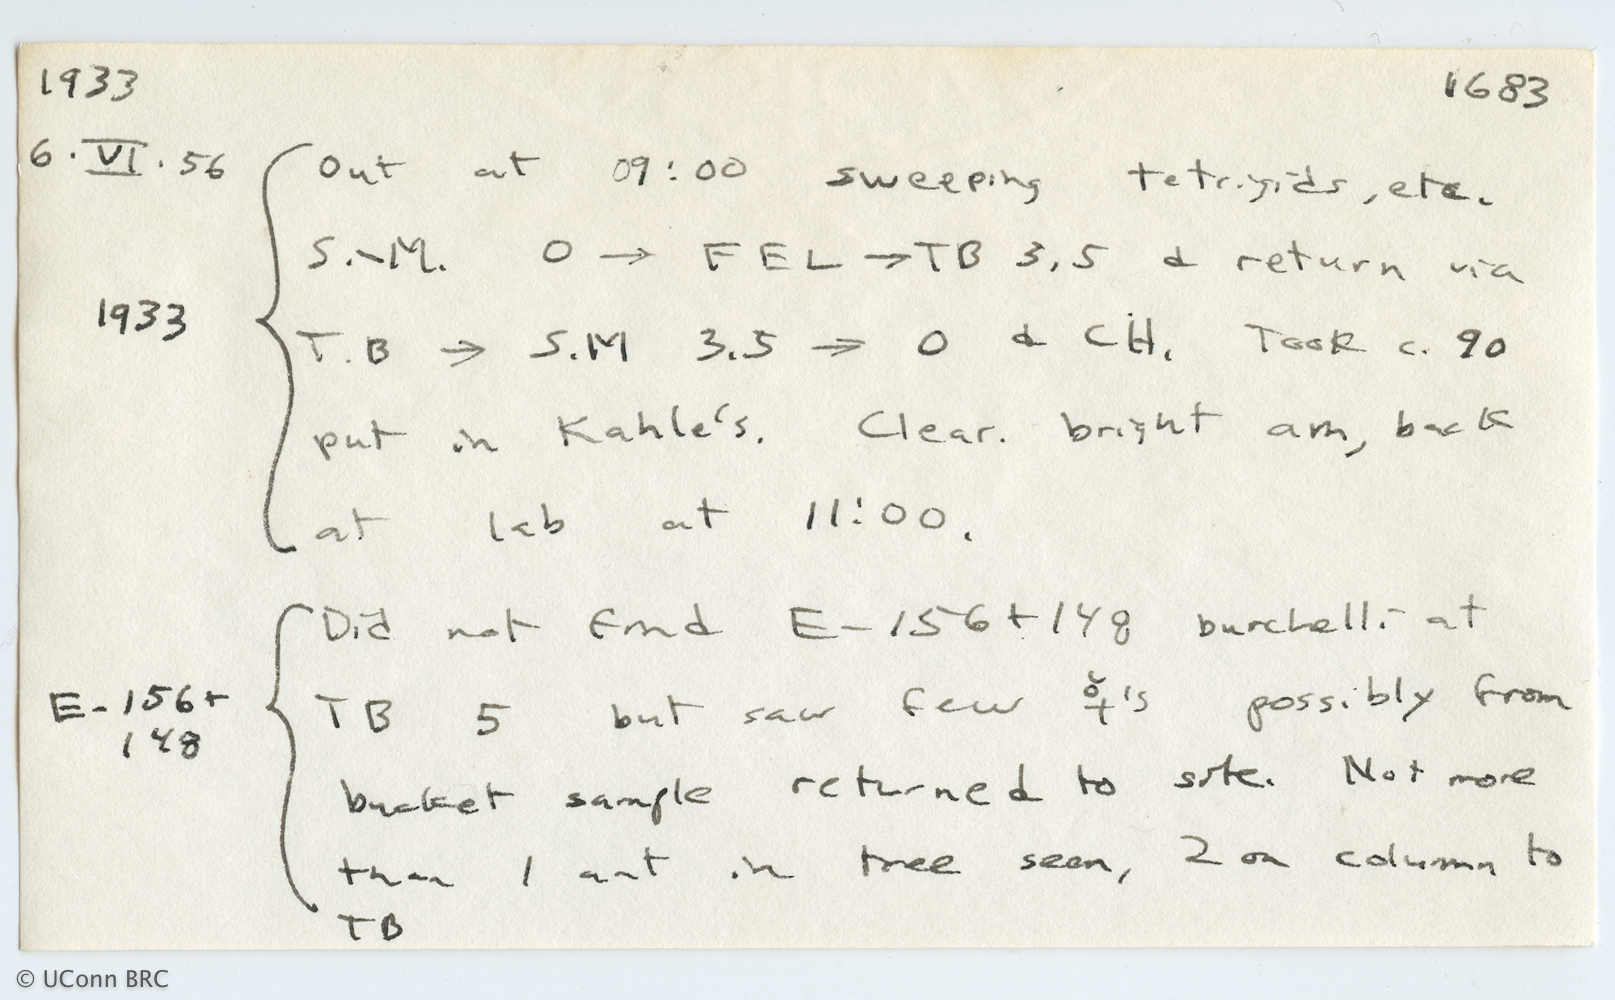 1933 1683
6.VI.56 Out at 09:00 sweeping tetrigids, etc.
S.-M. 0 → FEL → TB 3.5 & return via
1933 T.B → S.M 3.5 → 0 & CH. Took c. 90
put in Kahle's. Clear. bright am, back
at lab at 11:00.
Did not find E-156+148 burchelli at
E-156+ TB 5 but saw few ☿'s possibly from
148
bucket sample returned to site. Not more
than 1 ant in tree seen, 2 on column to
TB
© UConn BRC